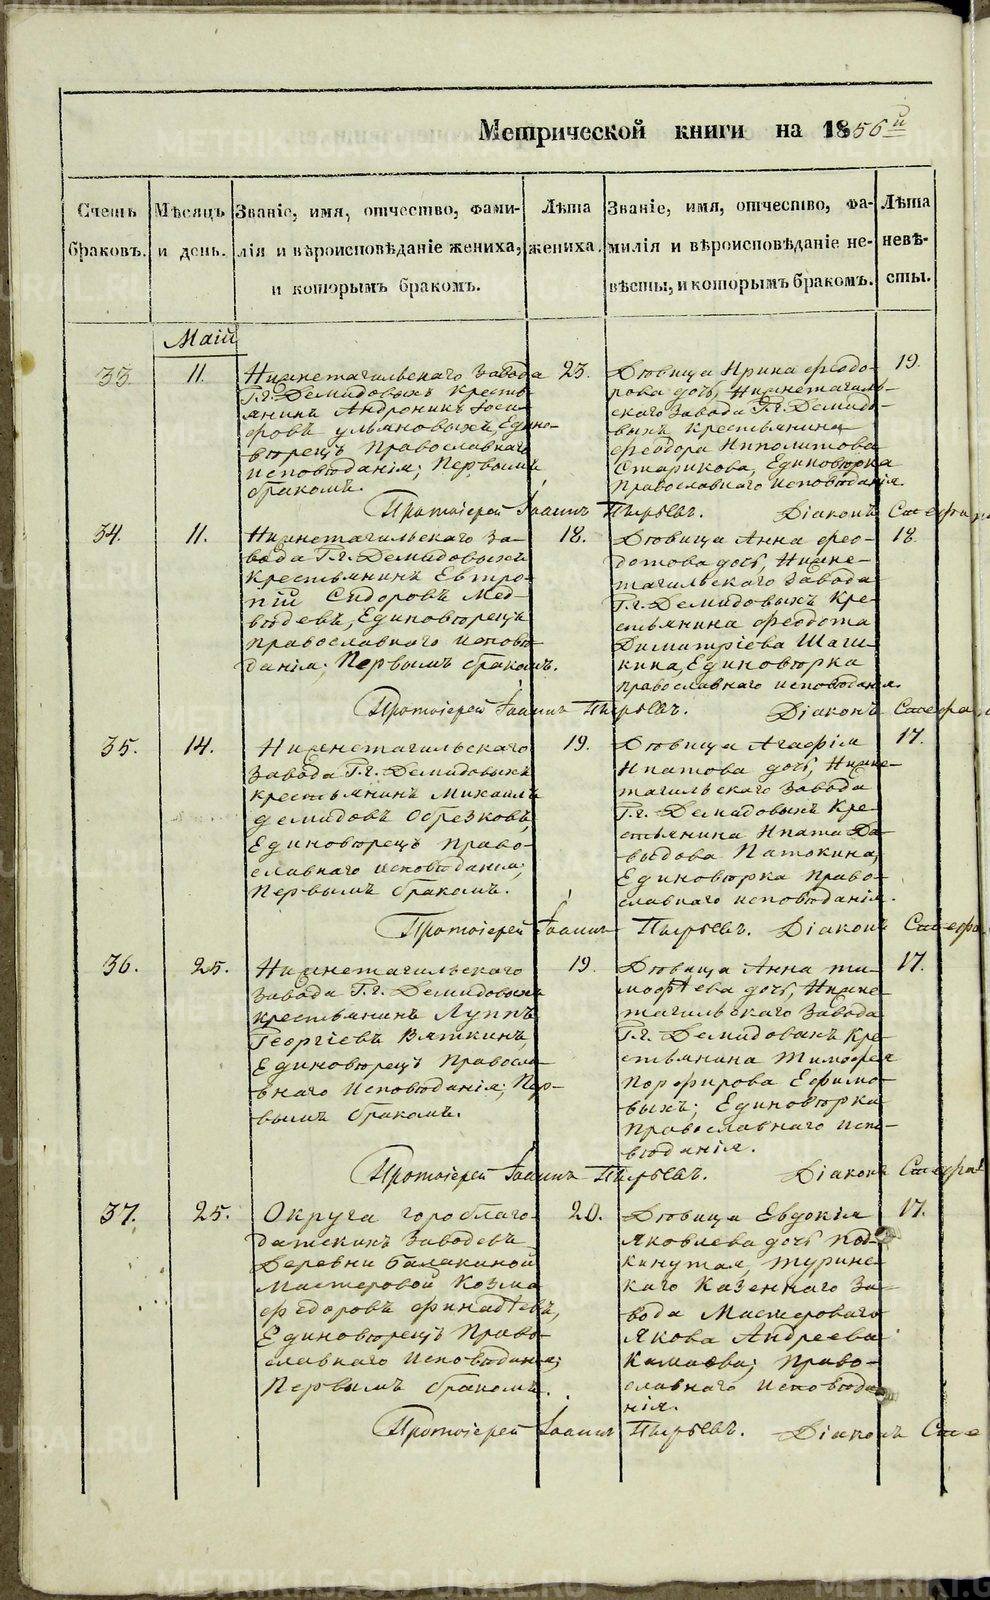 Метрической книги на 1856й
Счетъ браковъ.
Мѣсяцъ и день.
Званіе, имя, отчество, фами-
лія и вѣроисповѣданіе жениха,
и которымъ бракомъ.
Лѣта
жениха.
Званіе, имя, отчество, фа-
милія и вѣроисповѣданіе не-
вѣсты, и которымъ бракомъ.
Лѣта
невѣ-
сты.
Маій
33.
11.
Нижнетагильскаго завода
Г.г. Демидовыхъ кресть-
янинъ Андроникъ Іоси-
фовъ Ульяновыхъ, Едино-
вѣрецъ Православнаго
исповѣданія; Первымъ
бракомъ.
23.
Дѣвица Ирина Феодо-
рова дочь, Нижнетагиль-
скаго завода Г.г. Демидо-
выхъ Крестьянина
Феодора Ипполитова
Старикова, Единовѣрка
Православнаго исповѣданія.
19.
Протоіерей Іоаннъ Пырьевъ. Діаконъ
34.
11.
Нижнетагильскаго за-
вода Г.г. Демидовыхъ
Крестьянинъ Евтро-
пій Сидоровъ Мед-
вѣдевъ, Единовѣрецъ
православнаго исповѣ-
данія; Первымъ бракомъ.
18.
Дѣвица Анна Фео-
дотова дочь, Нижне-
тагильскаго завода
Г.г. Демидовыхъ Кре-
стьянина Феодота
Димитріева Шаш-
кина, Единовѣрка
православнаго исповѣданія.
18.
Протоіерей Іоаннъ Пырьевъ. Діаконъ
35.
14.
Нижнетагильскаго
завода Г.г. Демидовыхъ
крестьянинъ Михаилъ
Демидовъ Обрезковъ,
Единовѣрецъ Право-
славнаго исповѣданія;
Первымъ бракомъ.
19.
Дѣвица Агафія
Ипатова дочь, Нижне-
тагильскаго завода
Г.г. Демидовыхъ Кре-
стьянина Ипата Да-
выдова Патокина,
Единовѣрка Право-
славнаго исповѣданія.
17.
Протоіерей Іоаннъ Пырьевъ. Діаконъ
36.
25.
Нижнетагильскаго
завода Г.г. Демидовыхъ
крестьянинъ Луппъ
Георгіевъ Вяткинъ,
Единовѣрецъ Правосла-
внаго Исповѣданія; Пер-
вымъ бракомъ.
19.
Дѣвица Анна Ти-
мофѣева дочь, Нижне-
тагильскаго завода
Г.г. Демидовыхъ Кре-
стьянина Тимофея
Порфирова Ефимо-
выхъ; Единовѣрка
Православнаго испо-
вѣданія.
17.
Протоіерей Іоаннъ Пырьевъ. Діаконъ
37.
25.
Округа гороблаго-
датскихъ заводовъ
Деревни Балакиной
Мастеровой Козма
Федоровъ Финадѣевъ,
Единовѣрецъ Право-
славнаго Исповѣданія;
Первымъ бракомъ.
20.
Дѣвица Евдокія
Яковлева дочь Под-
кинутая, Турин-
скаго Казеннаго за-
вода Мастероваго
Якова Андреева
Камаева; Право-
славнаго исповѣда-
нія.
17.
Протоіерей Іоаннъ Пырьевъ. Діаконъ
METRIKI.GASO-URAL.RU